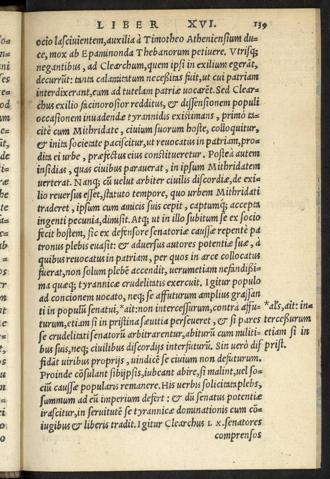 LIBER XVI. 139
ocio lasciuientem, auxilia à Timotheo Atheniensium du-
ce, mox ab Epaminonda Thebanorum petiuere. Vtrisq;
negantibus, ad Clearchum, quem ipsi in exilium egerāt,
decurrūt: tanta calamitatum necessitas fuit, ut cui patriam
interdixerant, eum ad tutelam patriæ uocarēt. Sed Clear-
chus exilio facinorosior redditus, & dissensionem populi
occasionem inuadendæ tyrannidis existimans, primò ta-
citè cum Mithridate, ciuium suorum hoste, colloquitur,
& inita societate paciscitur, ut reuocatus in patriam, pro-
dita ei urbe, præfectus eius constitueretur. Posteà autem
insidias, quas ciuibus parauerat, in ipsum Mithridatem
uerterat. Nanq; cū uelut arbiter ciuilis discordiæ, de exi-
lio reuersus esset, statuto tempore, quo urbem Mithridati
traderet, ipsum cum amicis suis cepit, captumq́; accepta
ingenti pecunia, dimisit. Atq; ut in illo subitum se ex socio
fecit hostem, sic ex defensore senatoriæ caussæ repentè pa
tronus plebis euasit: & aduersus autores potentiæ suæ, à
quibus reuocatus in patriam, per quos in arce collocatus
fuerat, non solum plebē accendit, uerumetiam nefandissi-
ma quæq; tyrannicæ crudelitatis exercuit. Igitur populo
ad concionem uocato, neq; se affuturum amplius grassan
ti in populū senatui, *ait: non intercessurum, contra affu-
turum, etiam si in pristina sæuitia perseueret, & si pares
se crudelitati senatorū arbitrarentur, abiturū cum militi-
bus suis, neq; ciuilibus discordijs interfuturū. Sin uerò dif
fidāt uiribus proprijs, uindicē se ciuium non defuturum.
Proinde cōsulant sibijpsis, iubeant abire, si malint, uel so-
ciū caussæ popularis remanere. His uerbis solicitata plebs,
summum ad eū imperium defert: & dū senatus potentiæ
irascitur, in seruitutē se tyrannicæ dominationis cum cō-
iugibus & liberis tradit. Igitur Clearchus LX. senatores
comprensos
*alṡ, ait: in-
terceßurum
etiam si in
prist.